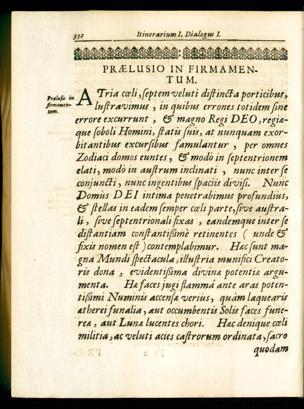 332 Itinerarium I. Dialogus I.
PRÆLUSIO IN FIRMAMEN-
TUM.
Prælusio in
firmamen-
tum.
ATria cœli, septem veluti distincta porticibus,
lustravimus, in quibus errones totidem sine
errore excurrunt, & magno Regi DEO, regiæ-
que soboli Homini, statis suis, at nunquam exor-
bitantibus excursibus famulantur, per omnes
Zodiaci domos euntes, & modò in septentrionem
elati, modò in austrum inclinati, nunc inter se
conjuncti, nunc ingentibus spaciis divisi. Nunc
Domûs DEI intima penetrabimus profundiùs,
& stellas in eadem semper cœli parte, sive austra-
li, sive septentrionali fixas, eandemque inter se
distantiam constantissimè retinentes (unde &
fixis nomen est) contemplabimur. Hæc sunt ma-
gna Mundi spectacula, illustria munifici Creato-
ris dona, evidentissima divinæ potentiæ argu-
menta. Hæ faces jugi flammâ ante aras poten-
tissimi Numinis accensæ veriùs, quàm laquearis
ætherei funalia, aut occumbentis Solis faces fune-
reæ, aut Lunæ lucentes chori. Hæc denique cœli
militia, ac veluti acies castrorum ordinata, sacro
quodam